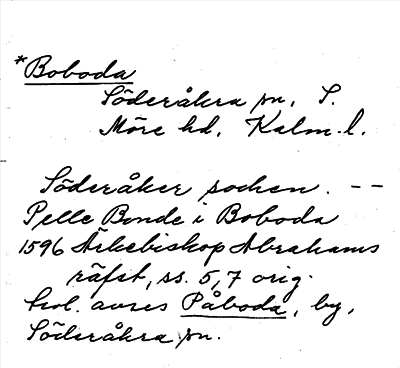 *Boboda
Söderåkra sn, S.
Möre hd, Kalm. l.
Söderåker sochen. --
Pelle Bonde i Boboda
1596 Ärkebiskop Abrahams
räfst, ss. 5, 7 orig.
hol. avses Påboda, by,
Söderåkra sn.